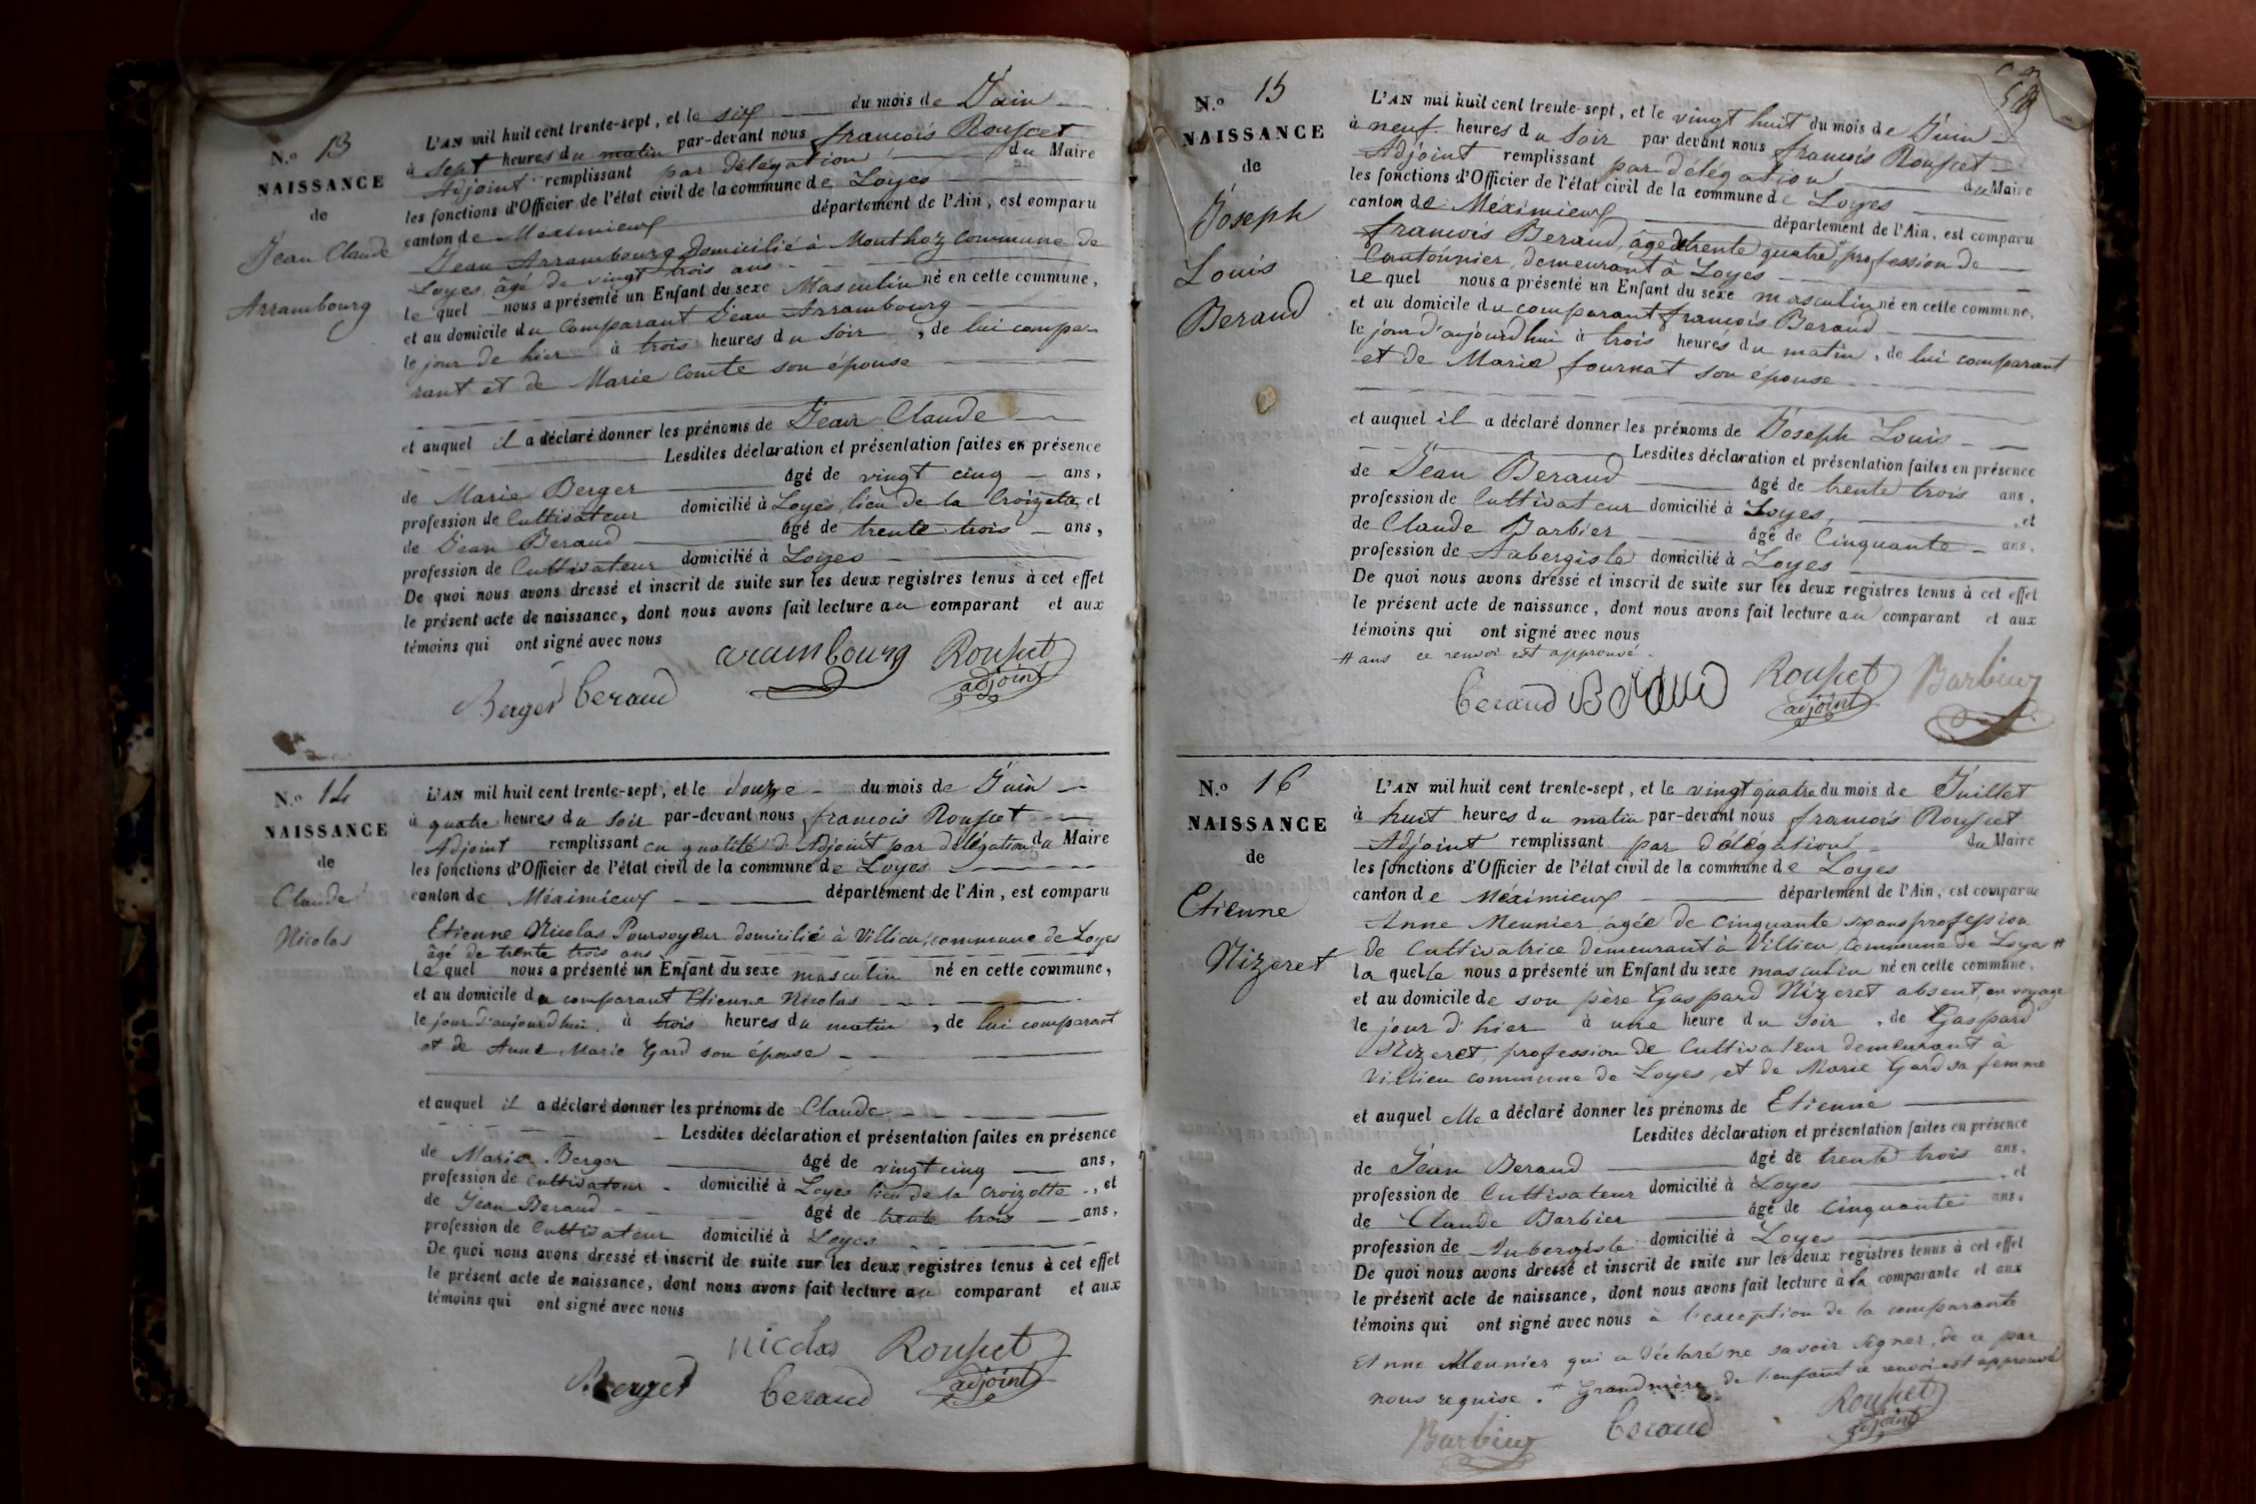 N.o 13
NAISSANCE
de
Jean Claude
Arrambourg
L'AN mil huit cent trente-sept, et le six du mois de Juin
à sept heures du matin par-devant nous françois Rousset
Adjoint remplissant par délégation du Maire
les fonctions d'Officier de l'état civil de la commune de Loyes
canton de Méximieux département de l'Ain, est comparu
Jean Arrambourg domicilié à Monthoz commune de
Loyes, âgé de vingt trois ans
le quel nous a présenté un Enfant du sexe Masculin né en cette commune,
et au domicile du Comparant Jean Arrambourg
le jour de hier à trois heures du soir, de lui compa-
rant et de Marie Comte son épouse
et auquel il a déclaré donner les prénoms de Jean Claude
Lesdites déclaration et présentation faites en présence
de Marie Berger âgé de vingt cinq ans,
profession de Cultivateur domicilié à Loyes, lieu de la Croizette, et
de Jean Beraud âgé de trente trois ans,
profession de Cultivateur domicilié à Loyes
De quoi nous avons dressé et inscrit de suite sur les deux registres tenus à cet effet
le présent acte de naissance, dont nous avons fait lecture au comparant et aux
témoins qui ont signé avec nous
arambourg Rousset
adjoint
Berger beraud
N.o 14
NAISSANCE
de
Claude
Nicolas
L'AN mil huit cent trente-sept, et le douze du mois de Juin
à quatre heures du soir par-devant nous françois Rousset
Adjoint remplissant en qualité d'Adjoint par délégation du Maire
les fonctions d'Officier de l'état civil de la commune de Loyes
canton de Méximieux département de l'Ain, est comparu
Etienne Nicolas Pourvoyeur domicilié à Villieu, commune de Loyes
âgé de trente trois ans
le quel nous a présenté un Enfant du sexe masculin né en cette commune,
et au domicile du comparant Etienne Nicolas
le jour d'aujourd'hui à trois heures du matin, de lui comparant
et de Anne Marie Gard son épouse
et auquel il a déclaré donner les prénoms de Claude
Lesdites déclaration et présentation faites en présence
de Marie Berger âgé de vingt cinq ans,
profession de Cultivateur domicilié à Loyes lieu de la Croizette, et
de Jean Beraud âgé de trente trois ans,
profession de Cultivateur domicilié à Loyes
De quoi nous avons dressé et inscrit de suite sur les deux registres tenus à cet effet
le présent acte de naissance, dont nous avons fait lecture au comparant et aux
témoins qui ont signé avec nous
nicolas Rousset
adjoint
Berger beraud
N.o 15
NAISSANCE
de
Joseph
Louis
Beraud
L'AN mil huit cent trente-sept, et le vingt huit du mois de Juin
à neuf heures du soir par devant nous françois Rousset
Adjoint remplissant par délégation du Maire
les fonctions d'Officier de l'état civil de la commune de Loyes
canton de Méximieux département de l'Ain, est comparu
françois Beraud, âgé de trente quatre # profession de
Cantonnier, demeurant à Loyes
le quel nous a présenté un Enfant du sexe masculin né en cette commune,
et au domicile du comparant françois Beraud
le jour d'aujourd'hui à trois heures du matin, de lui comparant
et de Marie fournat son épouse
et auquel il a déclaré donner les prénoms de Joseph Louis
Lesdites déclaration et présentation faites en présence
de Jean Beraud âgé de trente trois ans,
profession de Cultivateur domicilié à Loyes, et
de Claude Barbier âgé de Cinquante ans,
profession de Aubergiste domicilié à Loyes
De quoi nous avons dressé et inscrit de suite sur les deux registres tenus à cet effet
le présent acte de naissance, dont nous avons fait lecture au comparant et aux
témoins qui ont signé avec nous
# ans ce renvoi est approuvé.
beraud Beraud Rousset Barbier
adjoint
N.o 16
NAISSANCE
de
Etienne
Nizeret
L'AN mil huit cent trente-sept, et le vingt quatre du mois de Juillet
à huit heures du matin par-devant nous françois Rousset
Adjoint remplissant par délégation du Maire
les fonctions d'Officier de l'état civil de la commune de Loyes
canton de Méximieux département de l'Ain, est comparue
Anne Meunier âgée de Cinquante six ans profession
de Cultivatrice demeurant à Villieu, Commune de Loyes #
la quelle nous a présenté un Enfant du sexe masculin né en cette commune,
et au domicile de son père Gaspard Nizeret absent, en voyage
le jour d'hier à une heure du soir, de Gaspard
Nizeret, profession de Cultivateur demeurant à
Villieu commune de Loyes, et de Marie Gard sa femme
et auquel elle a déclaré donner les prénoms de Etienne
Lesdites déclaration et présentation faites en présence
de Jean Beraud âgé de trente trois ans,
profession de Cultivateur domicilié à Loyes, et
de Claude Barbier âgé de Cinquante ans,
profession de Aubergiste domicilié à Loyes
De quoi nous avons dressé et inscrit de suite sur les deux registres tenus à cet effet
le présent acte de naissance, dont nous avons fait lecture à la comparante et aux
témoins qui ont signé avec nous à l'exception de la comparante
Anne Meunier qui a déclaré ne savoir signer, de ce par
nous requise. # Grand mère de l'enfant ce renvoi est approuvé
Rousset
adjoint
Barbier beraud